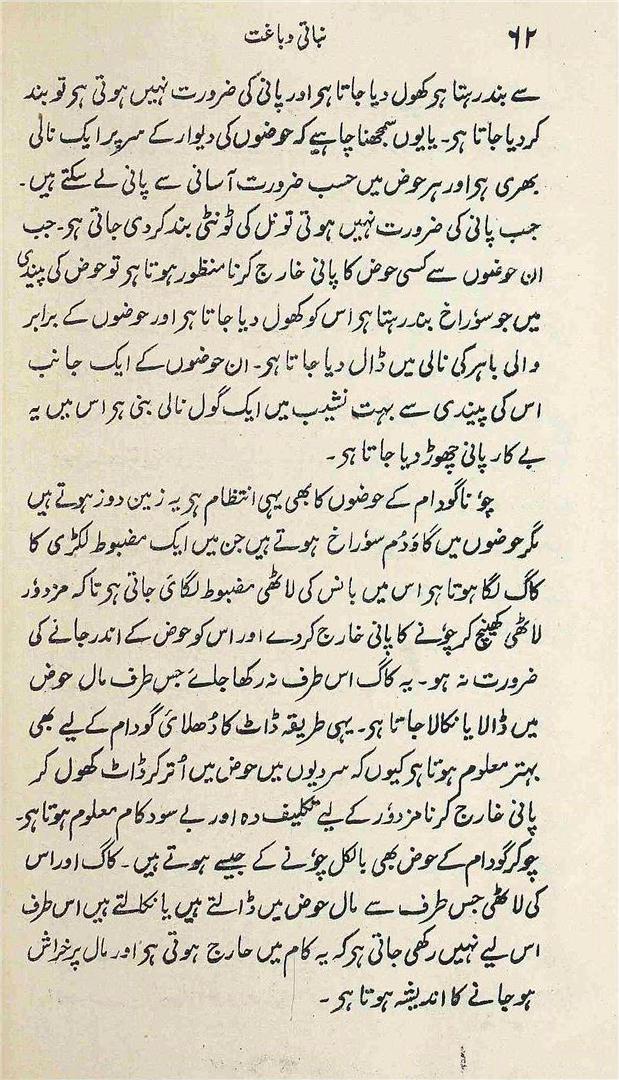 ۶۲ نباتی دباغت
سے بند رہتا ہر کھول دیا جاتا ہر اور پانی کی ضرورت نہیں ہوتی ہر تو بند
کردیا جاتا ہر۔ یا یوں سمجھنا چاہیے کہ حوضوں کی دیوار کے سر پر ایک نالی
بھری ہر اور ہر حوض میں حسب ضرورت آسانی سے پانی لے سکتے ہیں۔
جب پانی کی ضرورت نہیں ہوتی تو نل کی ٹونٹی بند کردی جاتی ہر۔ جب
ان حوضوں سے کسی حوض کا پانی خارج کرنا منظور ہوتا ہر تو حوض کی پیندی
میں جو سوٗراخ بند رہتا ہر اس کو کھول دیا جاتا ہر اور حوضوں کے برابر
والی باہر کی نالی میں ڈال دیا جاتا ہر۔ ان حوضوں کے ایک جانب
اس کی پیندی سے بہت نشیب میں ایک گول نالی بنی ہر اس میں یہ
بے کار پانی چھوڑ دیا جاتا ہر۔
چوٗنا گودام کے حوضوں کا بھی یہی انتظام ہر یہ زمین دوز ہوتے ہیں
مگر حوضوں میں گاؤدُم سوٗراخ ہوتے ہیں جن میں ایک مضبوط لکڑی کا
کاگ لگا ہوتا ہر اس میں بانس کی لاٹھی مضبوط لگائ جاتی ہر تاکہ مزدوٗر
لاٹھی کھینچ کر چوٗنے کا پانی خارج کردے اور اس کو حوض کے اندر جانے کی
ضرورت نہ ہو۔ یہ کاگ اس طرف نہ رکھا جائے جس طرف مال حوض
میں ڈالا یا نکالا جاتا ہر۔ یہی طریقہ ڈاٹ کا دُھلائ گودام کے لیے بھی
بہتر معلوم ہوتا ہر کیوں کہ سردیوں میں حوض میں اُتر کر ڈاٹ کھول کر
پانی خارج کرنا مزدوٗر کے لیے تکلیف دہ اور بے سود کام معلوم ہوتا ہر۔
چوکر گودام کے حوض بھی بالکل چوٗنے کے جیسے ہوتے ہیں۔ کاگ اور اس
کی لاٹھی جس طرف سے مال حوض میں ڈالتے ہیں یا نکالتے ہیں اس طرف
اس لیے نہیں رکھی جاتی ہر کہ یہ کام میں حارج ہوتی ہر اور مال پر خراش
ہو جانے کا اندیشہ ہوتا ہر۔